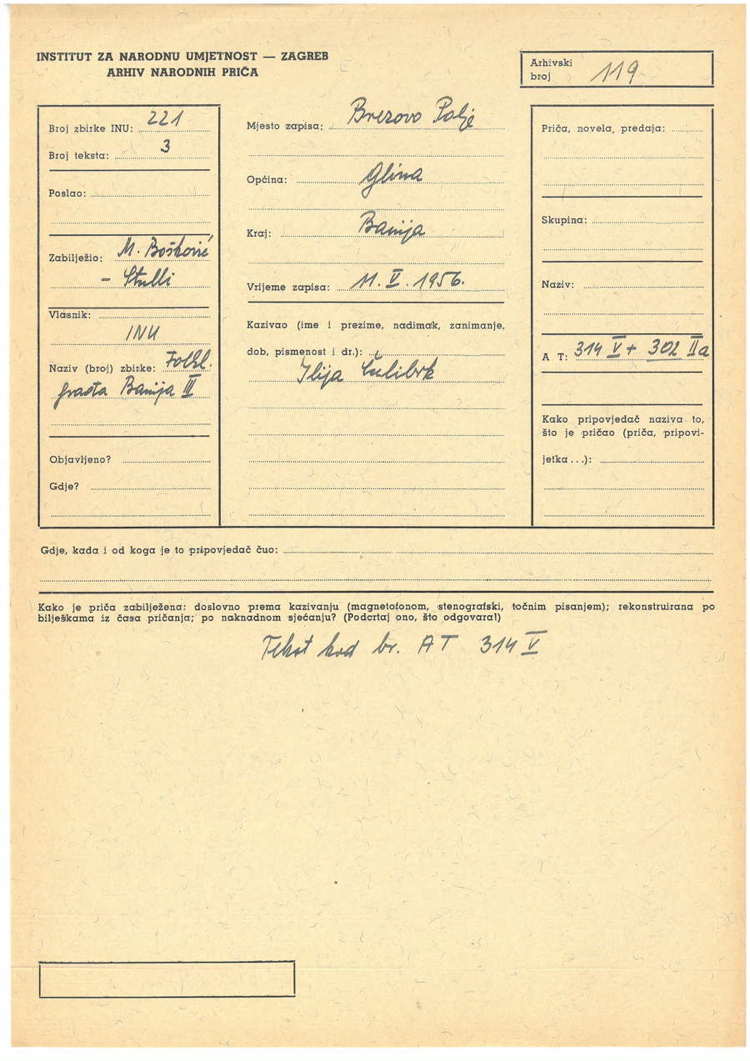 INSTITUT ZA NARODNU UMJETNOST — ZAGREB
ARHIV NARODNIH PRIČA
Arhivski
broj 119
Broj zbirke INU: 221
Broj teksta: 3
Poslao:
Zabilježio: M. Bošković
- Stulli
Vlasnik:
INU
Naziv (broj) zbirke: Folkl.
građa Banija III
Objavljeno?
Gdje?
Mjesto zapisa: Brezovo Polje
Općina: Glina
Kraj: Banija
Vrijeme zapisa: 11. V. 1956.
Kazivao (ime i prezime, nadimak, zanimanje,
dob, pismenost i dr.):
Ilija Čulibrk
Priča, novela, predaja:
Skupina:
Naziv:
A T: 314 V + 302 II a
Kako pripovjedač naziva to,
što je pričao (priča, pripovi-
jetka...):
Gdje, kada i od koga je to pripovjedač čuo:
Kako je priča zabilježena: doslovno prema kazivanju (magnetofonom, stenografski, točnim pisanjem); rekonstruirana po
bilješkama iz časa pričanja; po naknadnom sjećanju? (Podcrtaj ono, što odgovara!)
Tekst kod br. AT 314 V